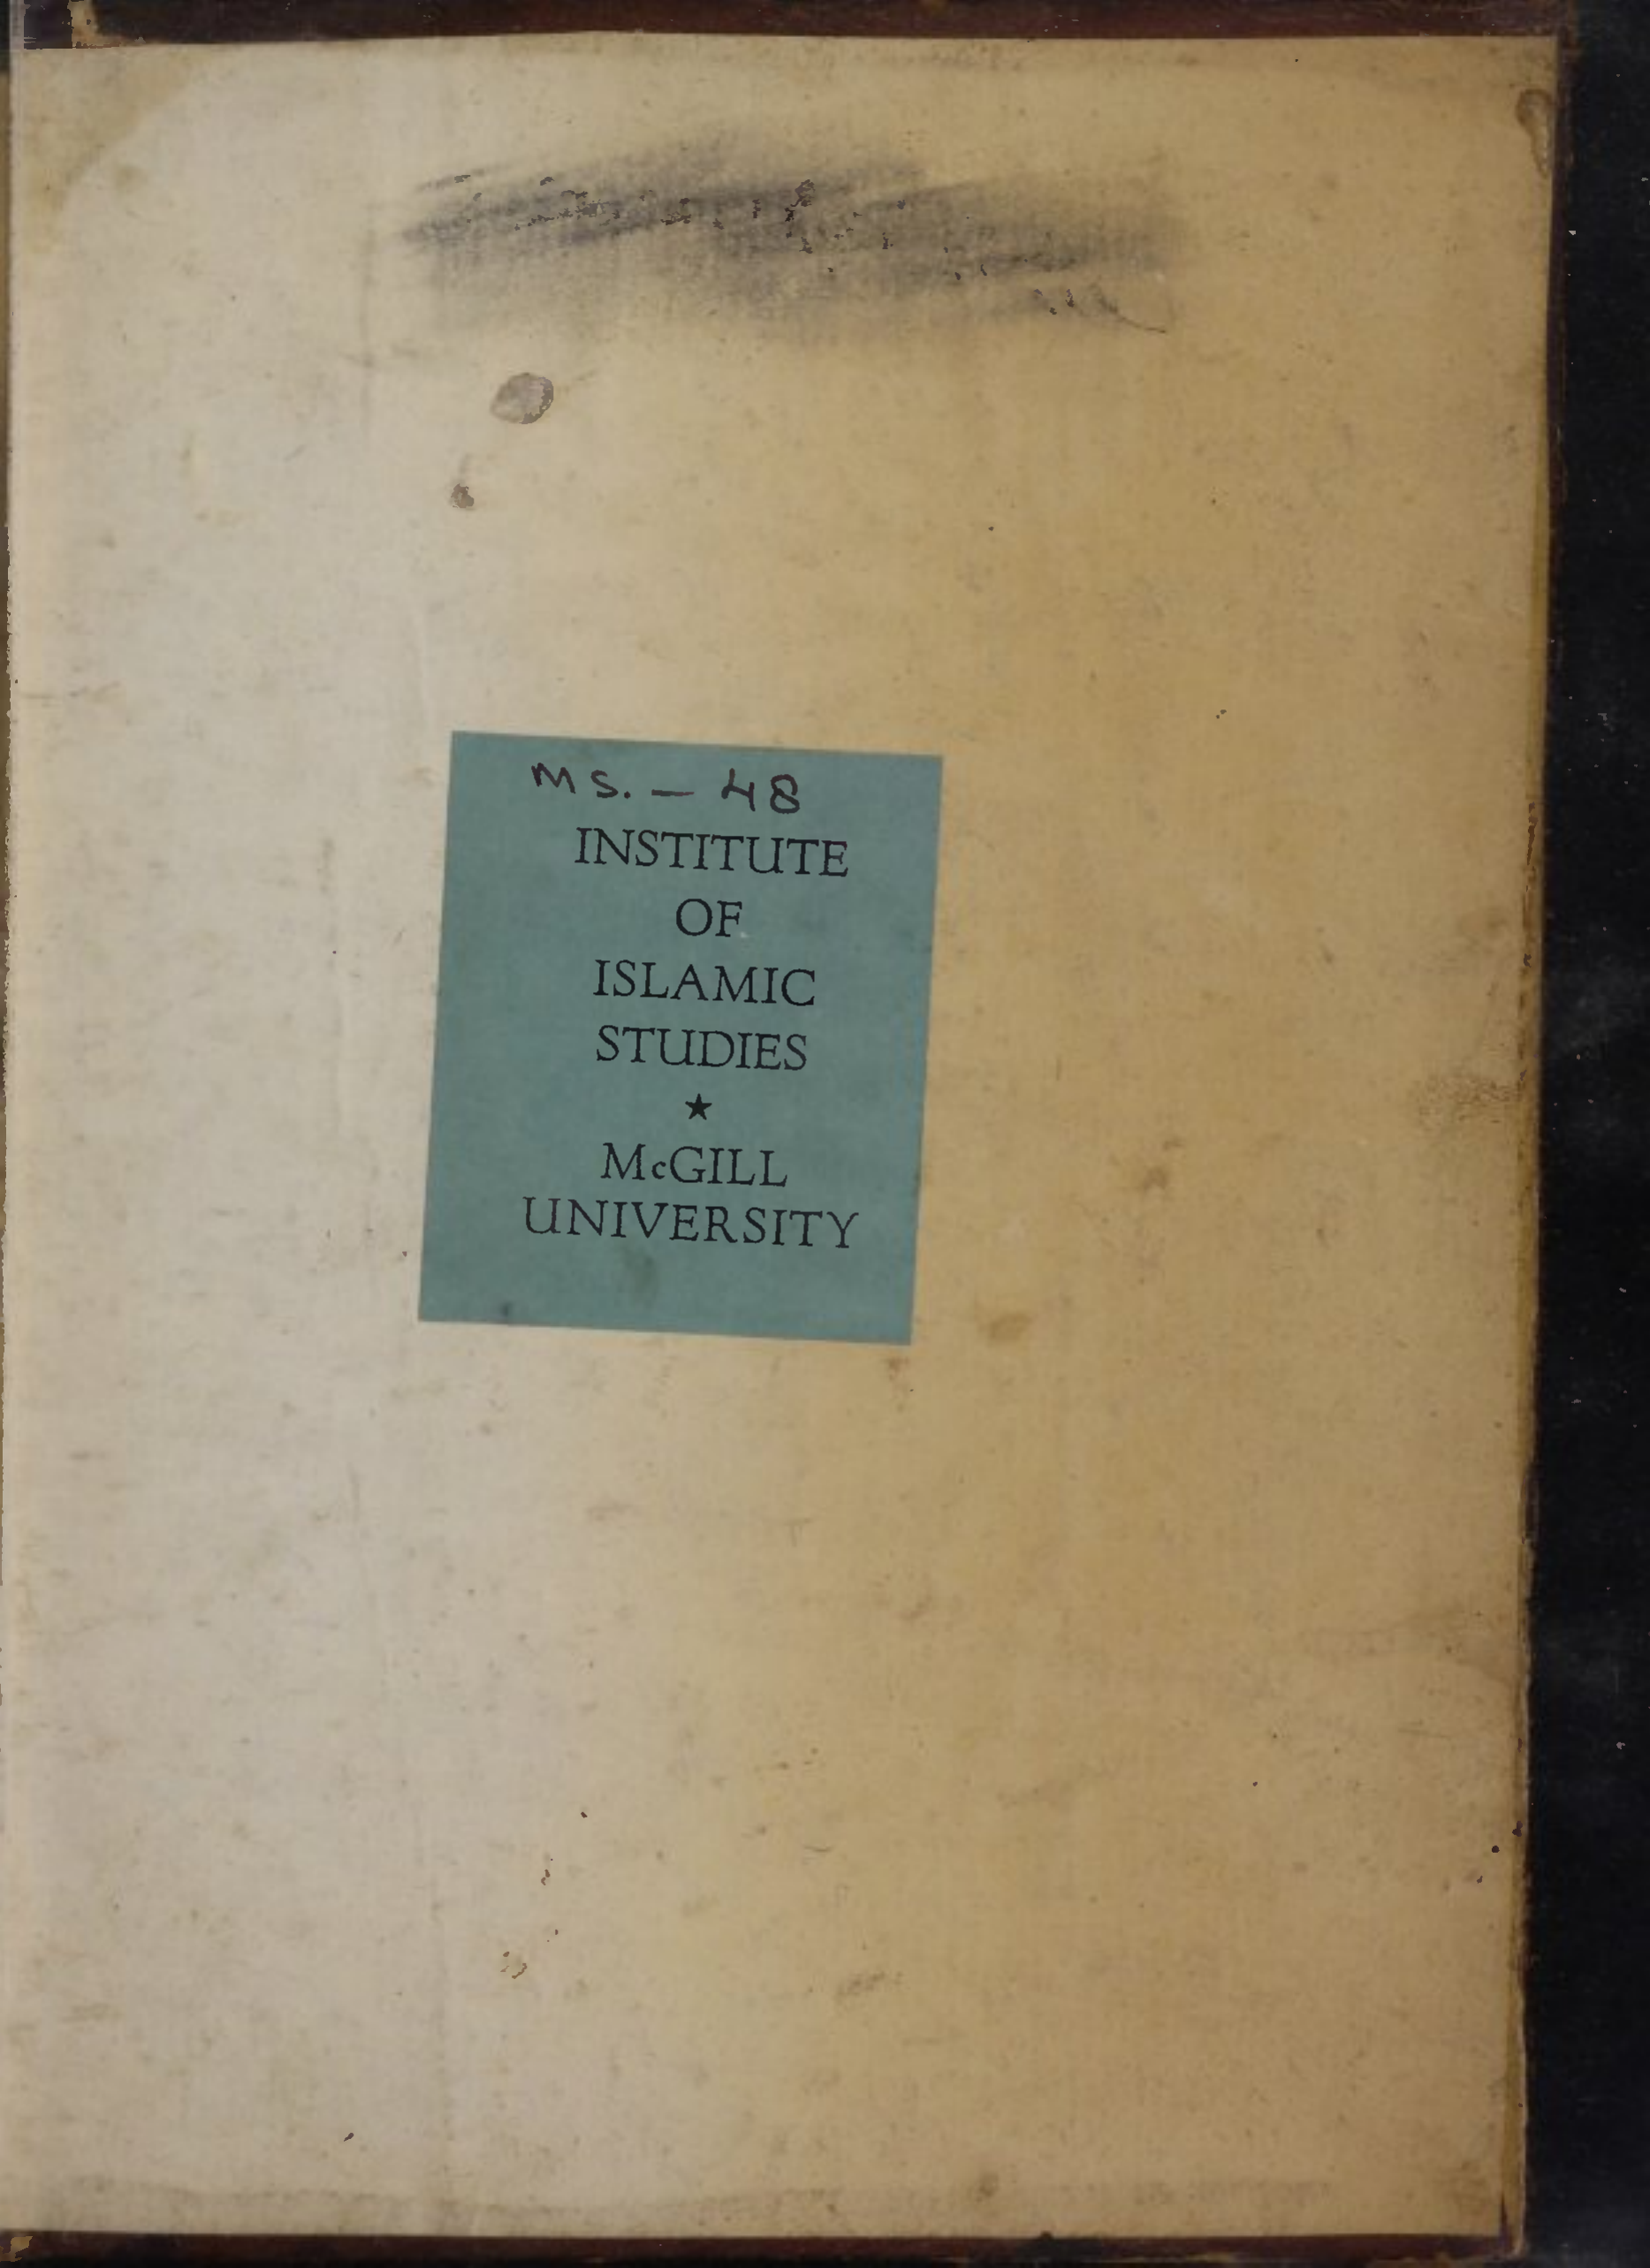 MS. — 48
INSTITUTE
OF
ISLAMIC
STUDIES
★
McGILL
UNIVERSITY